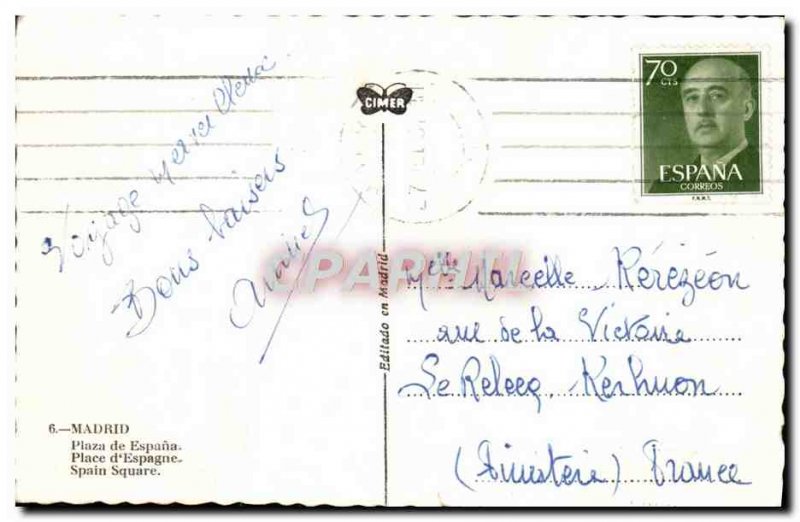 Voyage
Bons baisers
6.—MADRID
Plaza de España.
Place d'Espagne.
Spain Square.
CIMER
Editado en Madrid
CPAPHIL
70
CTS
ESPAÑA
CORREOS
F.N.M.T.
Melle Marcelle Kérézéon
rue de la Victoire
Le Relecq Kerhuon
(Finistère) France